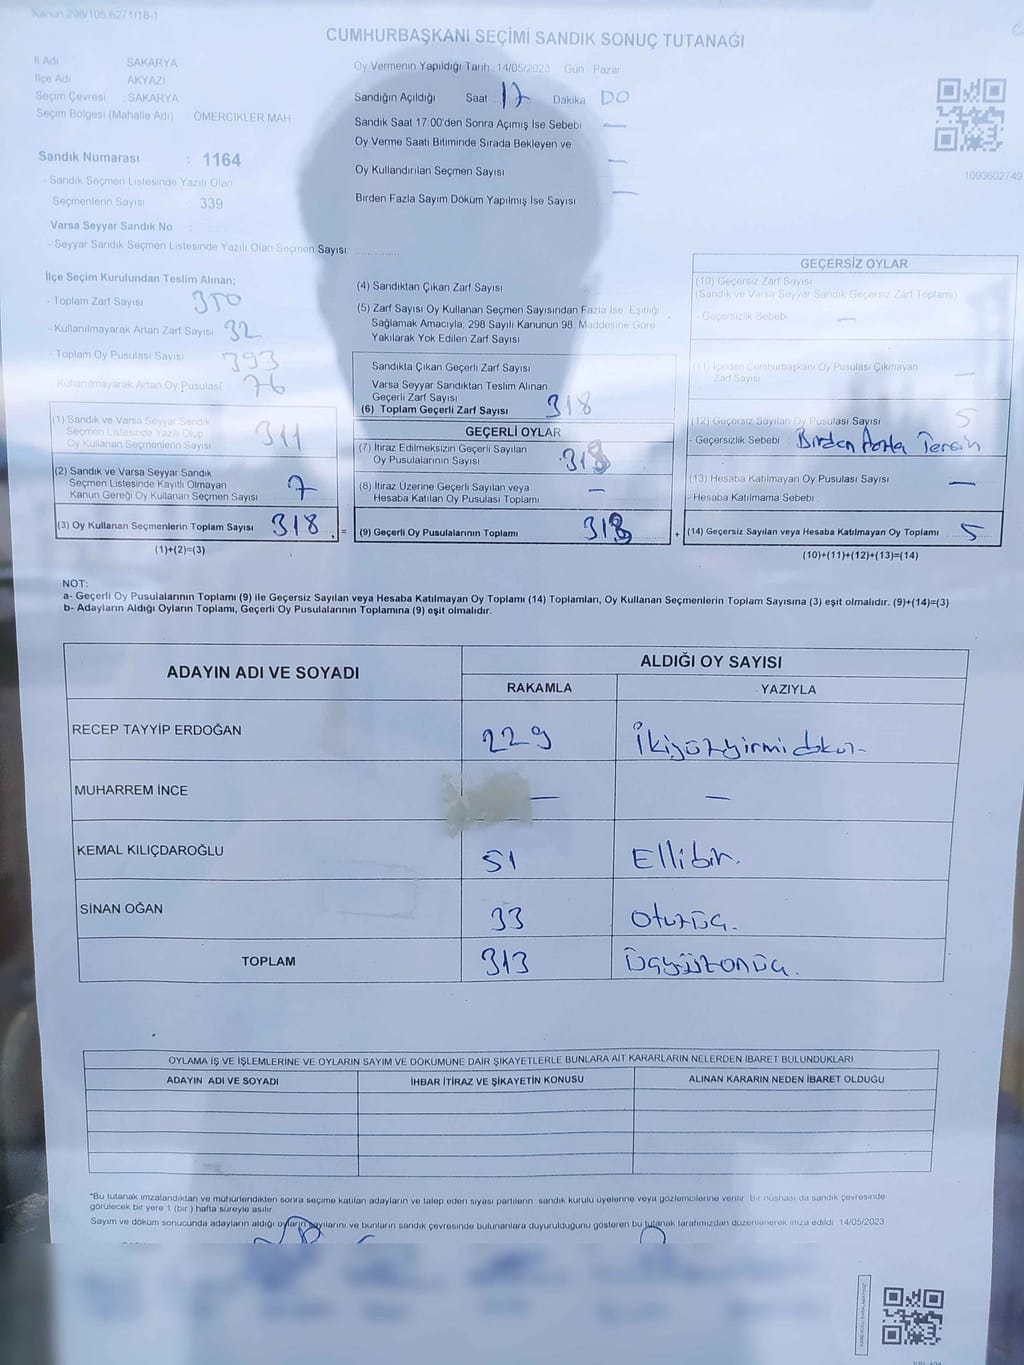 Kanun 298/105.6271/18-1
CUMHURBAŞKANI SEÇİMİ SANDIK SONUÇ TUTANAĞI
İl Adı SAKARYA
İlçe Adı AKYAZI
Seçim Çevresi : SAKARYA
Seçim Bölgesi (Mahalle Adı) ÖMERCİKLER MAH
Sandık Numarası : 1164
- Sandık Seçmen Listesinde Yazılı Olan
Seçmenlerin Sayısı : 339
Varsa Seyyar Sandık No :
- Seyyar Sandık Seçmen Listesinde Yazılı Olan Seçmen Sayısı:
Oy Vermenin Yapıldığı Tarih 14/05/2023 Gün Pazar
Sandığın Açıldığı Saat 17 Dakika 00
Sandık Saat 17:00'den Sonra Açımış İse Sebebi —
Oy Verme Saati Bitiminde Sırada Bekleyen ve
Oy Kullandırılan Seçmen Sayısı —
Birden Fazla Sayım Döküm Yapılmış İse Sayısı —
1093602749
İlçe Seçim Kurulundan Teslim Alınan;
- Toplam Zarf Sayısı 350
- Kullanılmayarak Artan Zarf Sayısı 32
- Toplam Oy Pusulası Sayısı 393
Kullanılmayarak Artan Oy Pusulası 76
(1) Sandık ve Varsa Seyyar Sandık
Seçmen Listesinde Yazılı Olup
Oy Kullanan Seçmenlerin Sayısı 311
(2) Sandık ve Varsa Seyyar Sandık
Seçmen Listesinde Kayıtlı Olmayan
Kanun Gereği Oy Kullanan Seçmen Sayısı 7
(3) Oy Kullanan Seçmenlerin Toplam Sayısı 318 =
(1)+(2)=(3)
(4) Sandıktan Çıkan Zarf Sayısı
(5) Zarf Sayısı Oy Kullanan Seçmen Sayısından Fazla İse, Eşitliği
Sağlamak Amacıyla, 298 Sayılı Kanunun 98. Maddesine Göre
Yakılarak Yok Edilen Zarf Sayısı
Sandıkla Çıkan Geçerli Zarf Sayısı
Varsa Seyyar Sandıktan Teslim Alınan
Geçerli Zarf Sayısı
(6) Toplam Geçerli Zarf Sayısı 318
GEÇERLİ OYLAR
(7) İtiraz Edilmeksizin Geçerli Sayılan
Oy Pusulalarının Sayısı 313
(8) İtiraz Üzerine Geçerli Sayılan veya
Hesaba Katılan Oy Pusulası Toplamı —
(9) Geçerli Oy Pusulalarının Toplamı 313 +
GEÇERSİZ OYLAR
(10) Geçersiz Zarf Sayısı
(Sandık ve Varsa Seyyar Sandık Geçersiz Zarf Toplamı)
- Geçersizlik Sebebi —
(11) İçinden Cumhurbaşkanı Oy Pusulası Çıkmayan
Zarf Sayısı —
(12) Geçersiz Sayılan Oy Pusulası Sayısı 5
- Geçersizlik Sebebi Birden Fazla Tercih
(13) Hesaba Katılmayan Oy Pusulası Sayısı —
- Hesaba Katılmama Sebebi
(14) Geçersiz Sayılan veya Hesaba Katılmayan Oy Toplamı 5
(10)+(11)+(12)+(13)=(14)
NOT:
a- Geçerli Oy Pusulalarının Toplamı (9) ile Geçersiz Sayılan veya Hesaba Katılmayan Oy Toplamı (14) Toplamları, Oy Kullanan Seçmenlerin Toplam Sayısına (3) eşit olmalıdır. (9)+(14)=(3)
b- Adayların Aldığı Oyların Toplamı, Geçerli Oy Pusulalarının Toplamına (9) eşit olmalıdır.
ADAYIN ADI VE SOYADI ALDIĞI OY SAYISI
RAKAMLA YAZIYLA
RECEP TAYYİP ERDOĞAN 229 İkiyüzyirmidokuz
MUHARREM İNCE — —
KEMAL KILIÇDAROĞLU 51 Ellibir.
SİNAN OĞAN 33 Otuzüç.
TOPLAM 313 Üçyüzonüç.
OYLAMA İŞ VE İŞLEMLERİNE VE OYLARIN SAYIM VE DÖKÜMÜNE DAİR ŞİKAYETLERLE BUNLARA AİT KARARLARIN NELERDEN İBARET BULUNDUKLARI
ADAYIN ADI VE SOYADI İHBAR İTİRAZ VE ŞİKAYETİN KONUSU ALINAN KARARIN NEDEN İBARET OLDUĞU
*Bu tutanak imzalandıktan ve mühürlendikten sonra seçime katılan adayların ve talep eden siyasi partilerin sandık kurulu üyelerine veya gözlemcilerine verilir. Bir nüshası da sandık çevresinde
görülecek bir yere 1 (bir) hafta süreyle asılır.
Sayım ve döküm sonucunda adayların aldığı oyların sayılarını ve bunların sandık çevresinde bulunanlara duyurulduğunu gösteren bu tutanak tarafımızdan düzenlenerek imza edildi. 14/05/2023